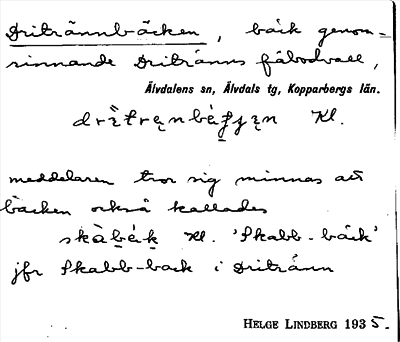 Dritrännbäcken, bäck genom-
rinnande Dritränns fäbodvall,
Älvdalens sn, Älvdals tg, Kopparbergs län.
Kl.
meddelaren tror sig minnas att
bäcken också kallades
skàbék Kl. 'Skabb-bäck'
jfr Skabb-back i Dritränn
HELGE LINDBERG 1935.